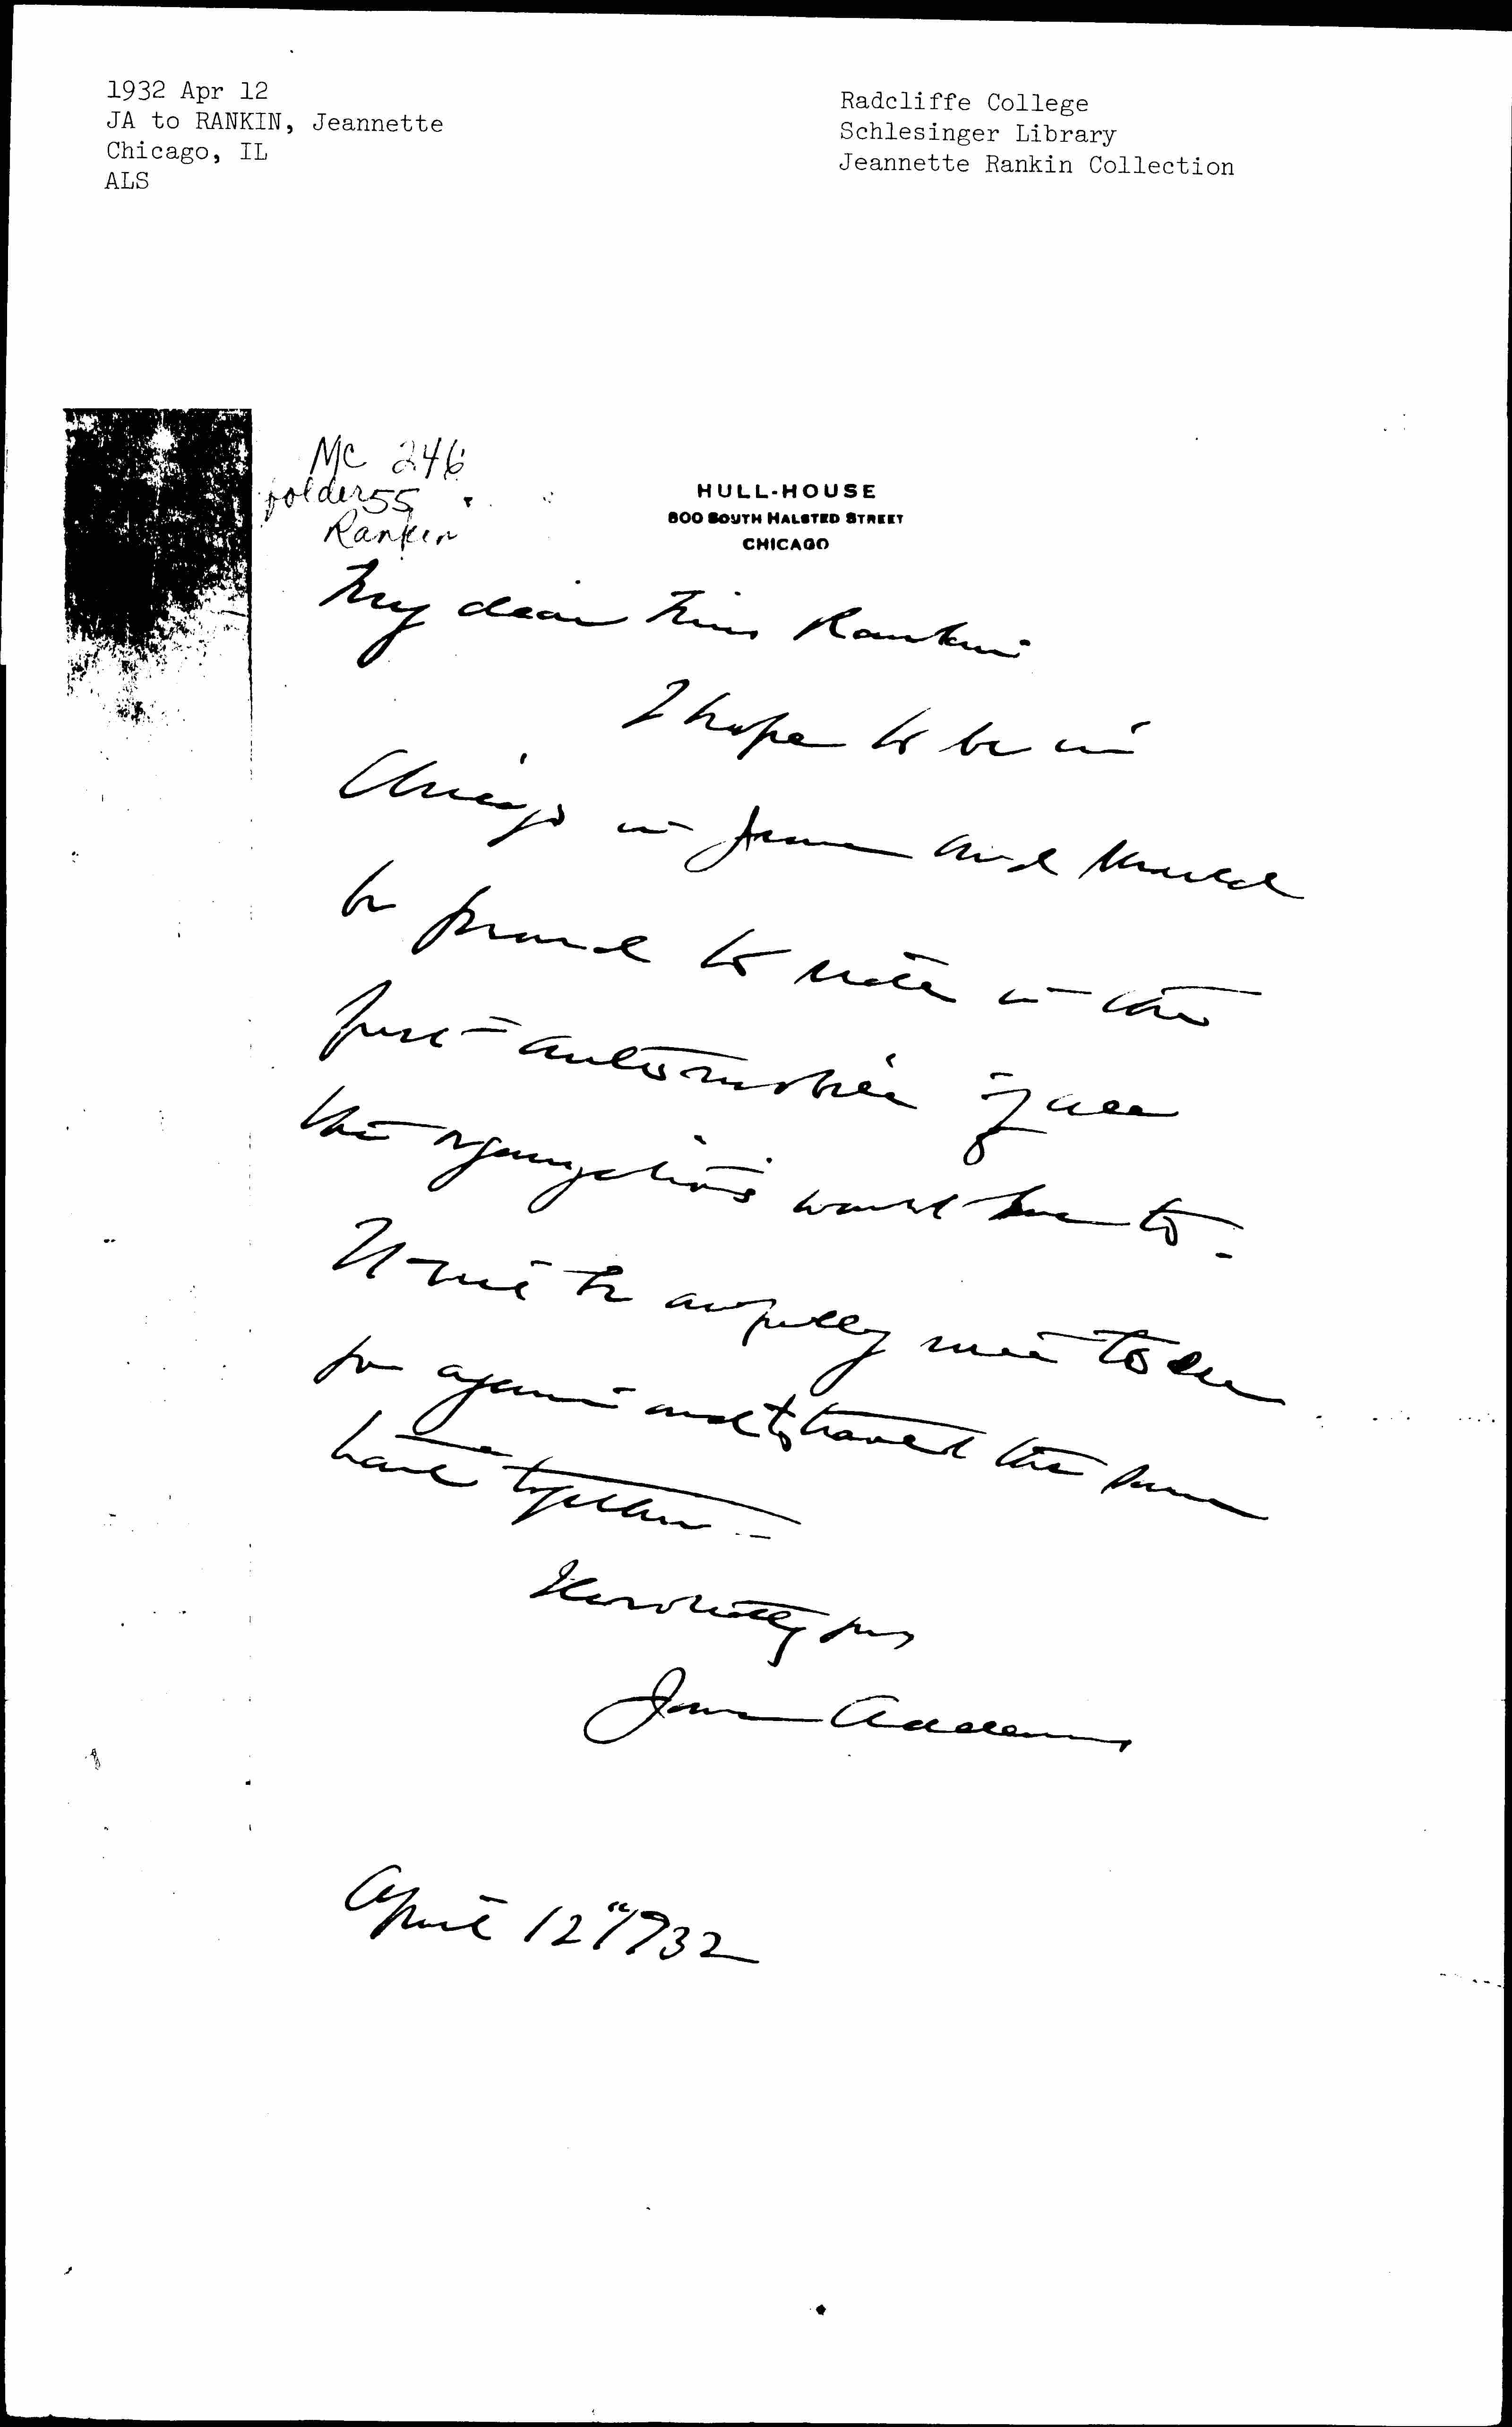 1932 Apr 12
JA to RANKIN, Jeannette
Chicago, IL
ALS
Radcliffe College
Schlesinger Library
Jeannette Rankin Collection
MC 246
folder 55
Rankin
HULL-HOUSE
800 SOUTH HALSTED STREET
CHICAGO
My dear Miss Rankin
I hope to be in
Chicago in June and should
be proud to ride in the
first automobile if all
the organizations would have to.
It will be awfully nice to see
you again and to travel the same
road together.
Devotedly yrs
Jane Addams
April 12" 1932